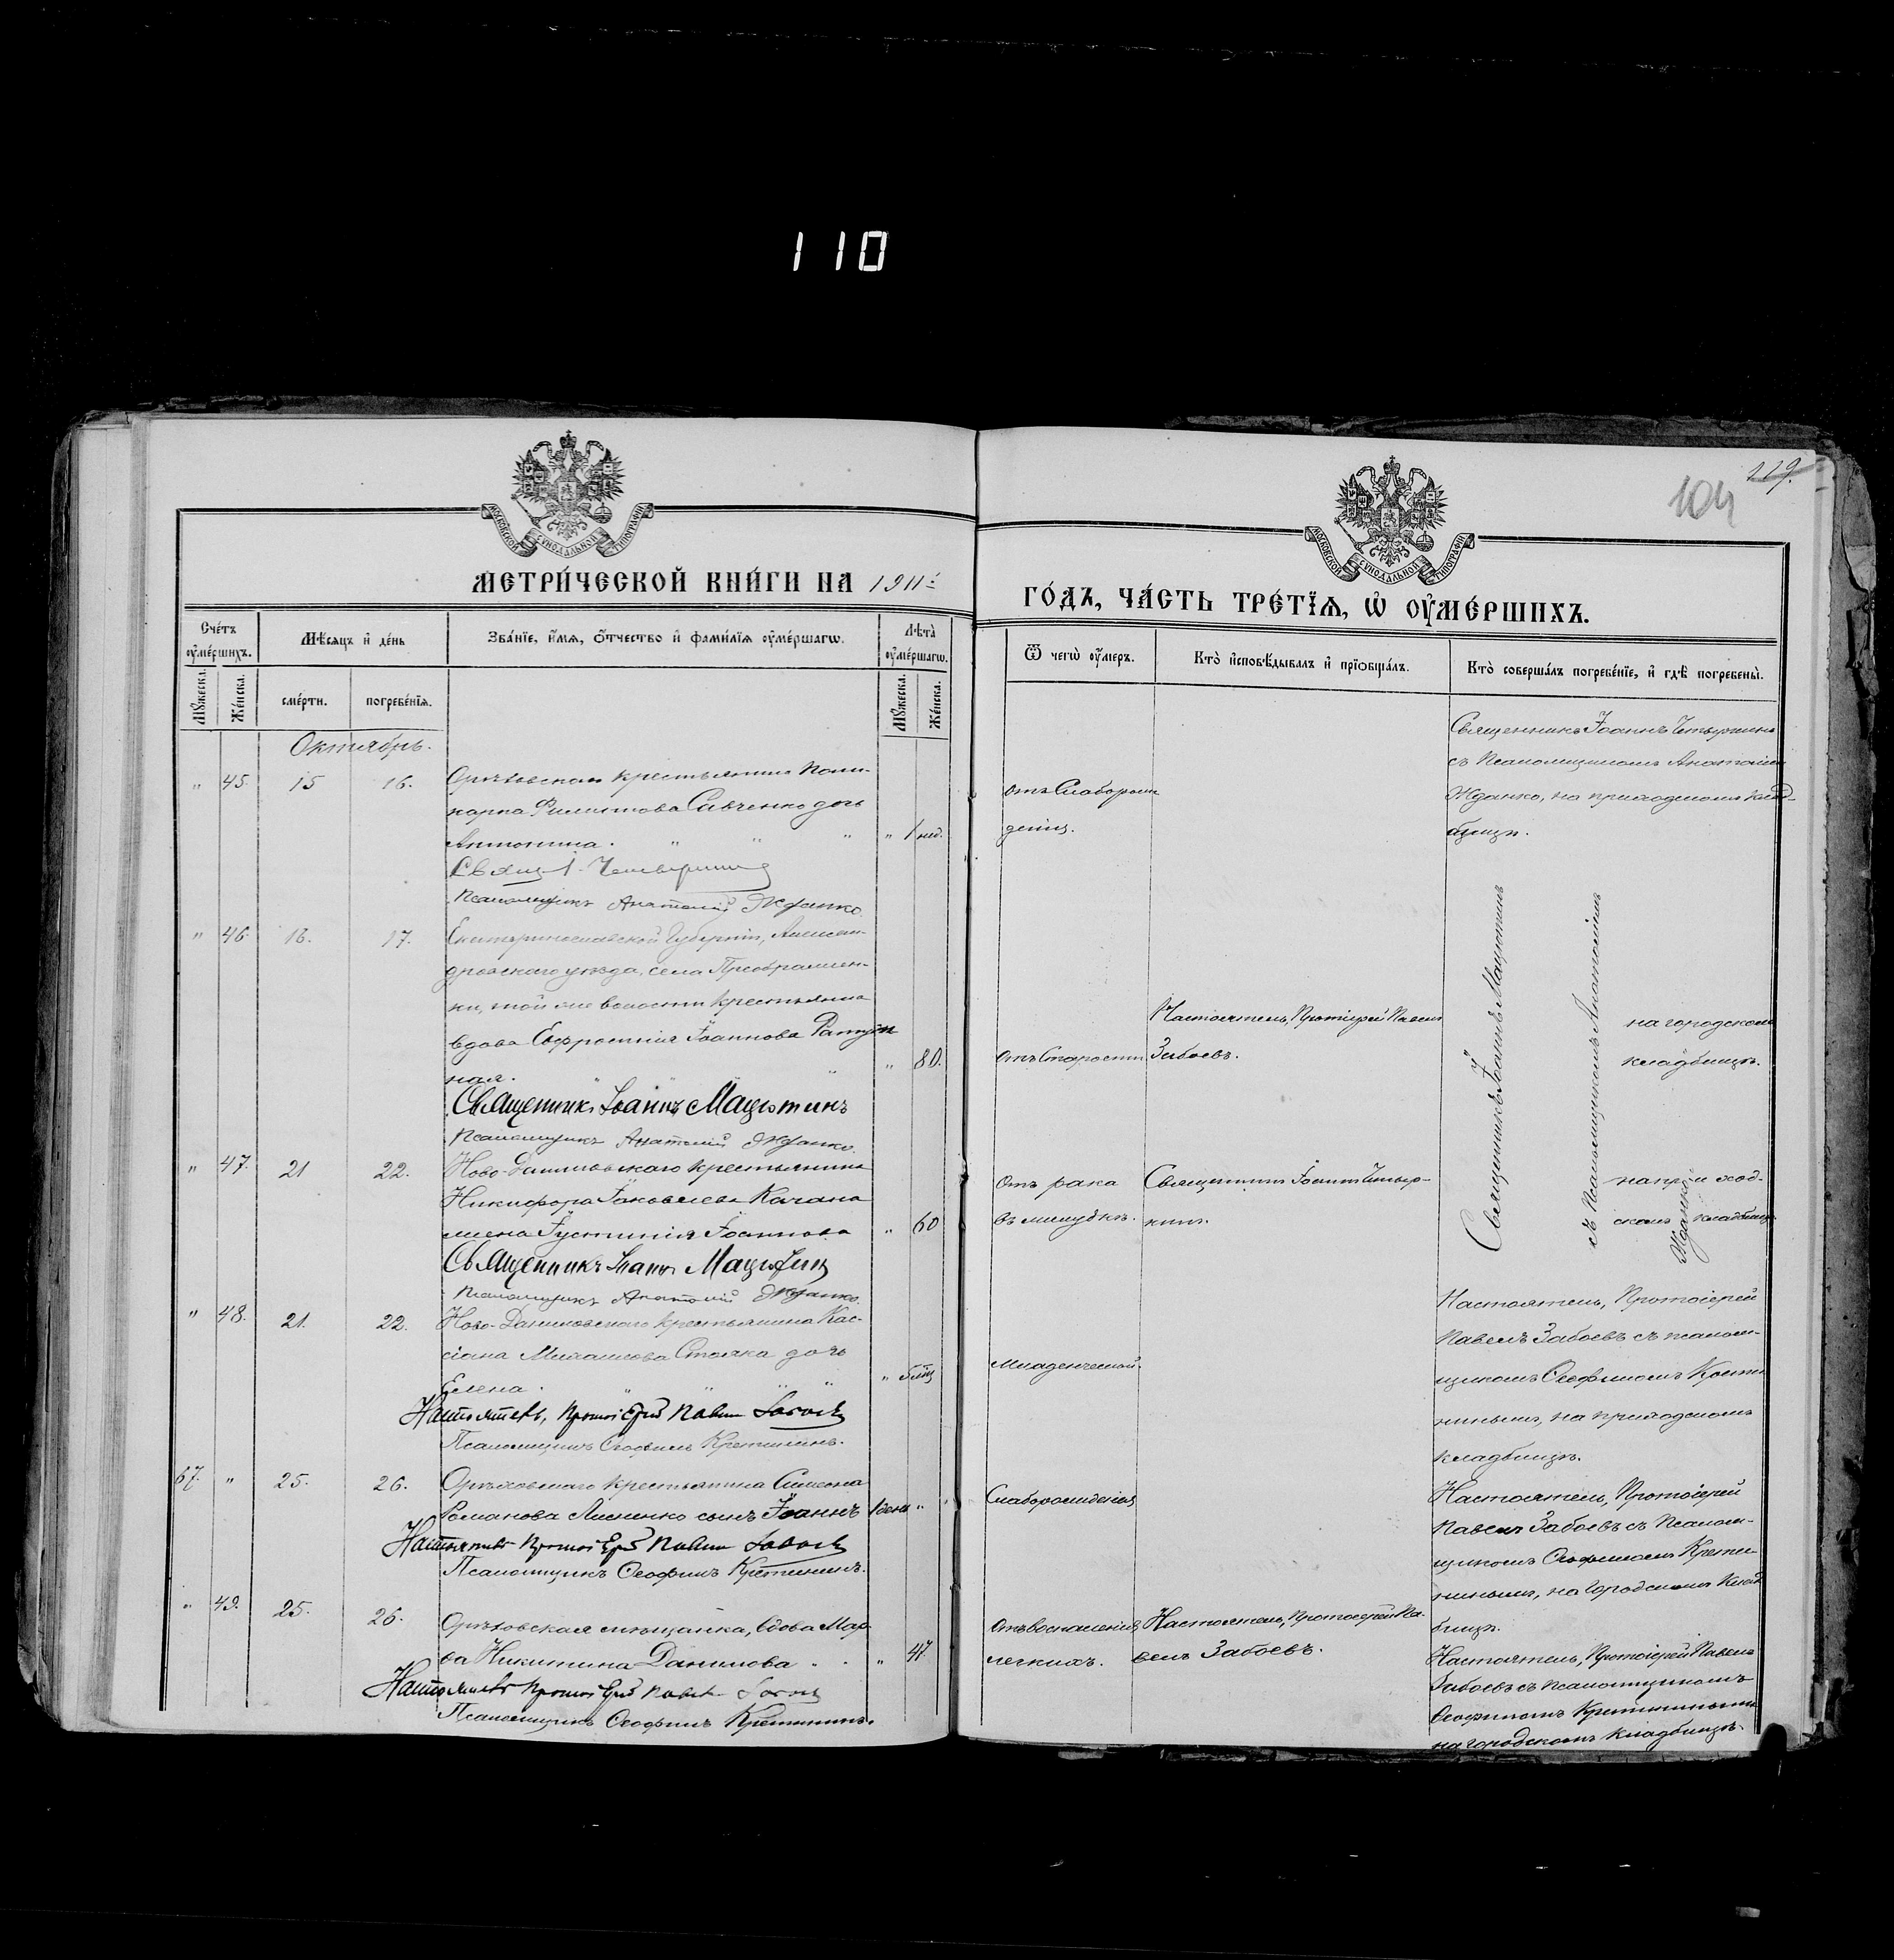 110
119.
104
МОСКОВСКОЙ СѴНОДАЛЬНОЙ ТИПОГРАФІИ
МОСКОВСКОЙ СѴНОДАЛЬНОЙ ТИПОГРАФІИ
МЕТРИ́ЧЕСКОЙ КНИ́ГИ НА 1911й
ГО́ДЪ, ЧА́СТЬ ТРЕ́ТЇѦ, Ѡ҆ ОУ҆МЕ́РШИХЪ.
Сче́тъ оу҆ме́ршихъ.
Мѣ́сѧцъ и҆ де́нь
Зва́нїе, и҆́мѧ, ѻ҆́тчество и҆ фами́лїѧ оу҆ме́ршагѡ.
Лѣ́та оу҆ме́ршагѡ.
Ѿ чегѡ̀ оу҆́меръ.
Кто̀ и҆сповѣ́дывалъ и҆ прїѡбща́лъ.
Кто̀ соверша́лъ погребе́нїе, и҆ гдѣ̀ погребены̀.
Мꙋ́жеска.
Же́нска.
сме́рти.
погребе́нїѧ.
Мꙋ́жеска.
Же́нска.
Октябрь.
" 45. 15 16.
Орѣховскаго крестьянина Поли-
карпа Филиппова Савченко дочь
Антонина. " " " " 1 нед.
Свящ. І. Четверикинъ
Псаломщикъ Анатолій Жданко.
отъ Слаборож-
денія.
Священникъ Іоаннъ Четверикинъ
съ Псаломщикомъ Анатоліемъ
Жданко, на приходскомъ клад-
бищѣ.
" 46. 16. 17.
Екатеринославской Губерніи, Алексан-
дровскаго уѣзда, села Преображен-
ки, той же волости крестьянка
вдова Евфросинія Іоаннова
ная. " " " 80.
Священникъ Іоаннъ Мацютинъ
Псаломщикъ Анатолій Жданко.
Отъ Старости
Настоятель, Протоіерей Павелъ
Забоевъ.
Священникъ Іоаннъ Мацютинъ
съ Псаломщикомъ Анатоліемъ
Жданко
на городскомъ
кладбищѣ.
" 47. 21 22.
Ново-Даниловскаго крестьянина
Никифора Іаковлева Качана
жена Іустинія Іоаннова " 60
Священникъ Іоаннъ Мацютинъ
Псаломщикъ Анатолій Жданко.
Отъ рака
въ желудкѣ.
Священникъ Іоаннъ Четвер-
кинъ.
на приход-
скомъ кладбищѣ
" 48. 21. 22.
Ново-Даниловскаго крестьянина Кас-
сіана Михаилова Стояка дочь
Елена. " " " " "
Настоятель, Протоіерей Павелъ Забоевъ
Псаломщикъ Ѳеофилъ Кретининъ.
Младенческой.
Настоятель, Протоіерей
Павелъ Забоевъ съ псалом-
щикомъ Ѳеофиломъ Крети-
нинымъ, на приходскомъ
кладбищѣ.
67. " 25. 26.
Орѣховскаго крестьянина Симеона
Романова Лисненко сынъ Іоаннъ 1 день "
Настоятель Протоіерей Павелъ Забоевъ
Псаломщикъ Ѳеофилъ Кретининъ.
Слаборожденія
Настоятель, Протоіерей
Павелъ Забоевъ съ Псалом-
щикомъ Ѳеофиломъ Крети-
нинымъ, на Городскомъ Клад-
бищѣ.
" 49. 25. 26.
Орѣховская мѣщанка, вдова Мар-
ѳа Никитина Данилова . . " 47.
Настоятель Протоіерей Павелъ Забоевъ
Псаломщикъ Ѳеофилъ Кретининъ.
Отъ воспаленія
легкихъ.
Настоятель, Протоіерей Па-
велъ Забоевъ.
Настоятель, Протоіерей Павелъ
Забоевъ съ псаломщикомъ
Ѳеофиломъ Кретининымъ
на городскомъ кладбищѣ.